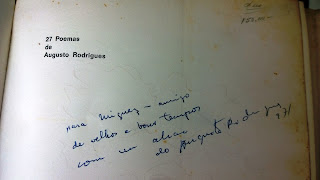 27 Poemas
de
Augusto Rodrigues
para Miguez - amigo
de velhos e bons tempos
com um abraço
do Augusto Rodrigues